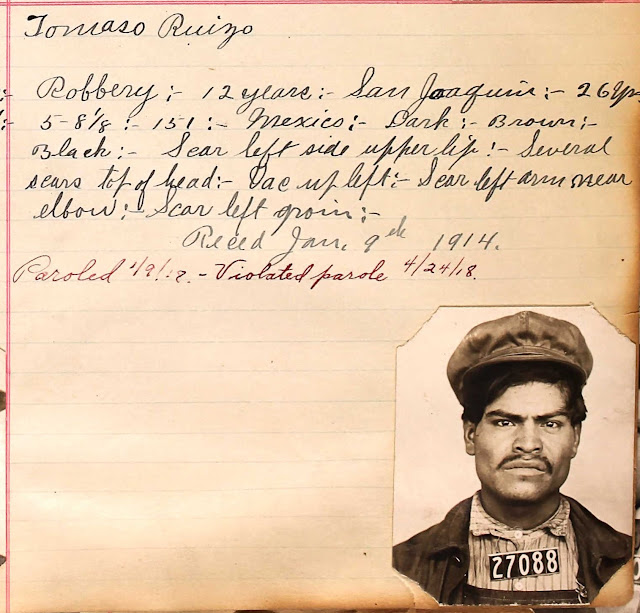 Tomaso Ruizo
Robbery :- 12 years :- San Joaquin :- 26 yrs
5-8 1/8 :- 151 :- Mexico :- Dark :- Brown :-
Black :- Scar left side upper lip :- Several
scars top of head :- Vac up left :- Scar left arm near
elbow :- Scar left groin :-
Recd Jan. 9th 1914.
Paroled 1/9/17. - Violated parole 4/24/18.
27088